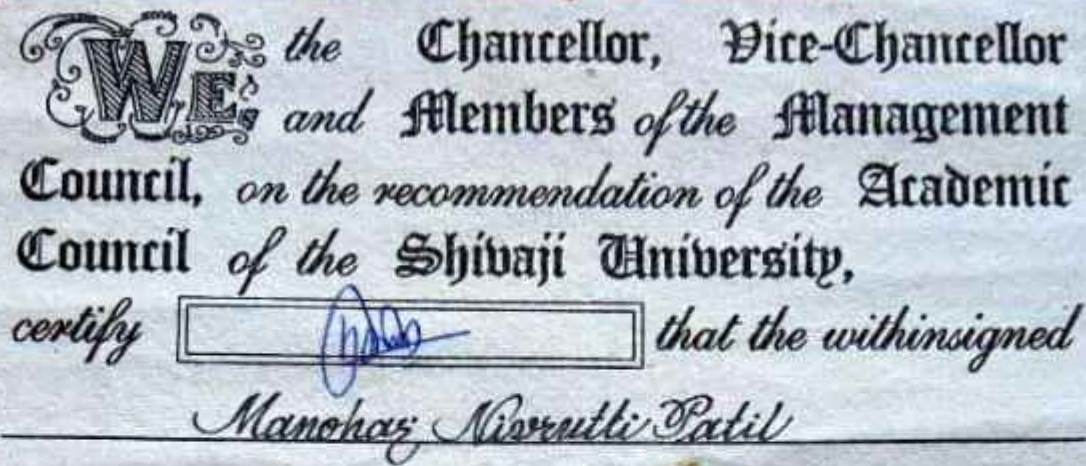 WE, the Chancellor, Vice-Chancellor
and Members of the Management
Council, on the recommendation of the Academic
Council of the Shivaji University,
certify that the withinsigned
Manohar Nivrutti Patil